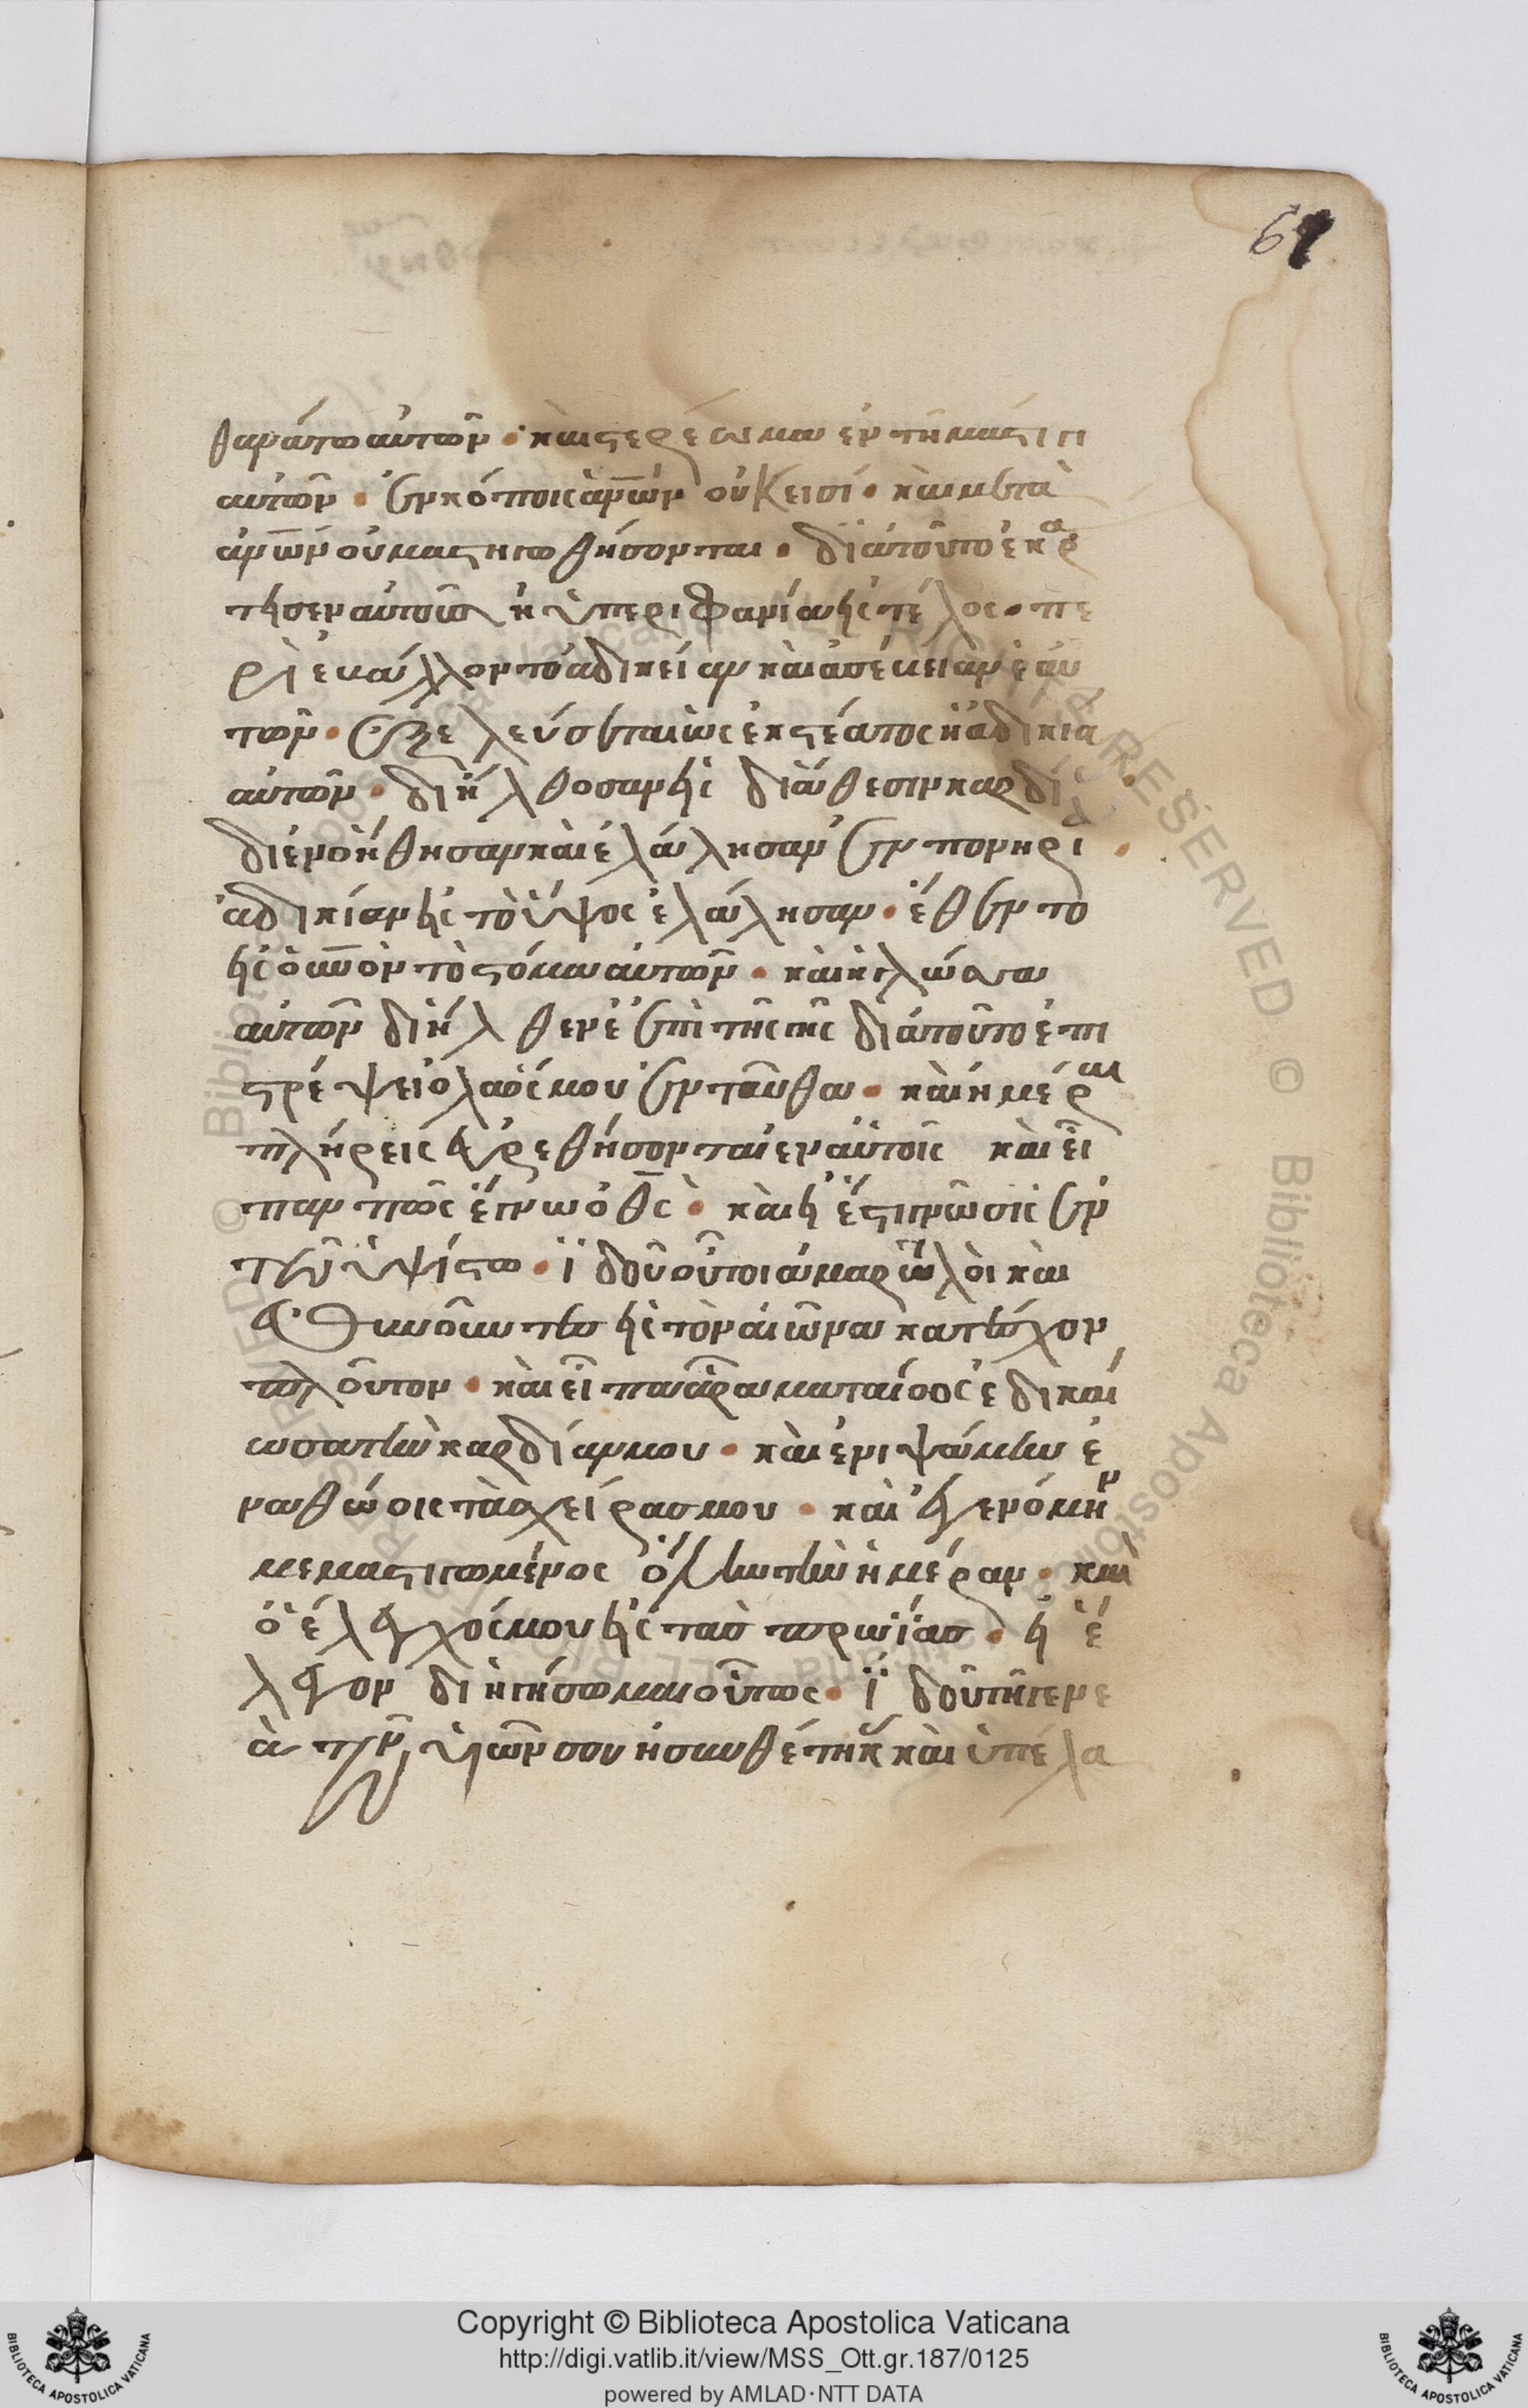 61
θανάτω αὐτῶν · καὶ στερέωμα ἐν τῆ μάστιγι
αὐτῶν · ἐν κόποις ἀνων οὐκ εισί · καὶ μετὰ
ἀνων οὐ μαστιγωθήσονται · διἀτοῦτο ἐκρα
τησεν αὐτοὺσ ἡ ὑπεριφανία εἰς τέλος · πε
ριεβάλλοντο ἀδικείαν καὶ ἀσέβειαν ἑαυ
τῶν · ἐξελεύσεται ὡς ἐκ στέατος ἡ ἀδικία
αὐτῶν · διῆλθοσαν εἰς διάθεσιν καρδί ·
διενοήθησαν καὶ ἐλάλησαν ἐν πονηρί ·
ἀδικίαν εἰς τὸ ὕψος ἐλάλησαν · ἔθεντο
εἰς οὐνὸν τὸ στόμα αὐτῶν · καὶ ἡ γλώσσα
αὐτῶν διῆλθεν ἐπὶ τῆς γῆς διἀτοῦτο ἐπι
στρέψει ὁ λαός μου ἐνταῦθα · καὶ ἡμέραι
πλήρεις εὑρεθήσονται ἐν αὐτοῖς καὶ εἶ
παν πῶς ἔγνω ὁ θς · καὶ εἰ ἔστι γνῶσις ἐν
τῶ ὑψίστω · ἰδοῦ οὗτοι ἁμαρτωλοὶ καὶ
εὐθηνοῦντες εἰς τὸν αἰῶνα κατέσχον
πλοῦτον · καὶ εἶπα ἆρα ματαίος ἐδικαί
ωσα τὴν καρδίαν μου · καὶ ἐνιψάμην ἐ
ν ἀθώοις τὰς χεῖρασ μου · καὶ ἐγενόμην
μεμαστιγωμένος ὅλην τὴν ἡμέραν · καὶ
ὁ ἔλεγχός μου εἰς τὰσ πρωΐασ · εἰ ἔ
λεγον διηγήσωμαι οὕτως · ἰδοῦ τῆ γενε
ὰ τῶν υἱῶν σου ἠσυνθέτηκ καὶ ὑπέλα
Copyright © Biblioteca Apostolica Vaticana
http://digi.vatlib.it/view/MSS_Ott.gr.187/0125
powered by AMLAD·NTT DATA